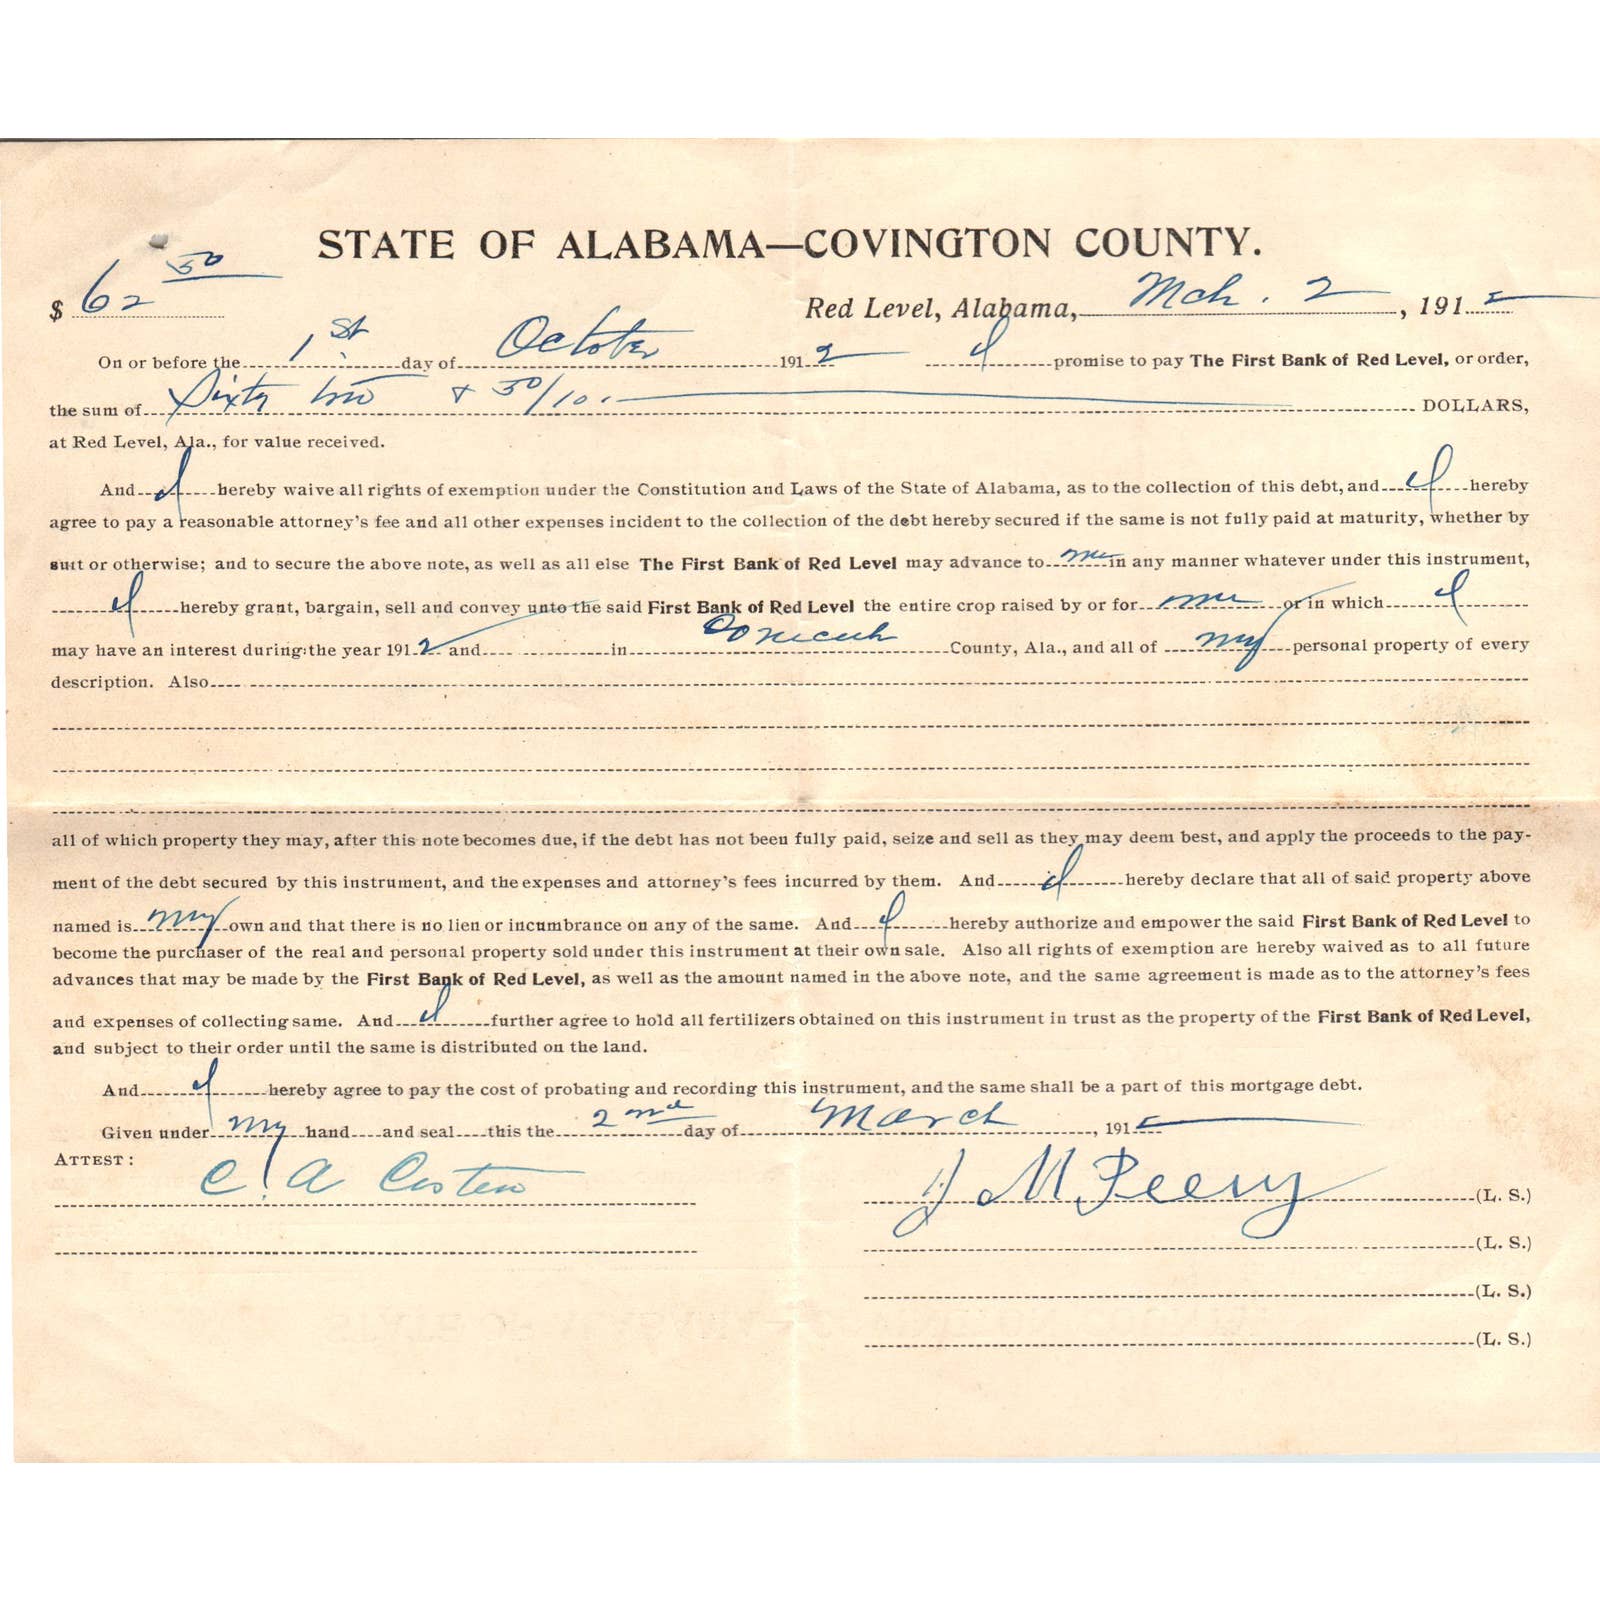 STATE OF ALABAMA—COVINGTON COUNTY.
$ 62 50
Red Level, Alabama, Mch. 2, 1912
On or before the 1st day of October 1912 I promise to pay The First Bank of Red Level, or order,
the sum of Sixty two & 50/10. DOLLARS,
at Red Level, Ala., for value received.
And I hereby waive all rights of exemption under the Constitution and Laws of the State of Alabama, as to the collection of this debt, and I hereby
agree to pay a reasonable attorney's fee and all other expenses incident to the collection of the debt hereby secured if the same is not fully paid at maturity, whether by
suit or otherwise; and to secure the above note, as well as all else The First Bank of Red Level may advance to me in any manner whatever under this instrument,
I hereby grant, bargain, sell and convey unto the said First Bank of Red Level the entire crop raised by or for me or in which I
may have an interest during the year 1912 and in Conecuh County, Ala., and all of my personal property of every
description. Also
all of which property they may, after this note becomes due, if the debt has not been fully paid, seize and sell as they may deem best, and apply the proceeds to the pay-
ment of the debt secured by this instrument, and the expenses and attorney's fees incurred by them. And I hereby declare that all of said property above
named is my own and that there is no lien or incumbrance on any of the same. And I hereby authorize and empower the said First Bank of Red Level to
become the purchaser of the real and personal property sold under this instrument at their own sale. Also all rights of exemption are hereby waived as to all future
advances that may be made by the First Bank of Red Level, as well as the amount named in the above note, and the same agreement is made as to the attorney's fees
and expenses of collecting same. And I further agree to hold all fertilizers obtained on this instrument in trust as the property of the First Bank of Red Level,
and subject to their order until the same is distributed on the land.
And I hereby agree to pay the cost of probating and recording this instrument, and the same shall be a part of this mortgage debt.
Given under my hand and seal this the 2nd day of March, 1912
ATTEST:
C. A Costen
J M Peevy (L. S.)
(L. S.)
(L. S.)
(L. S.)